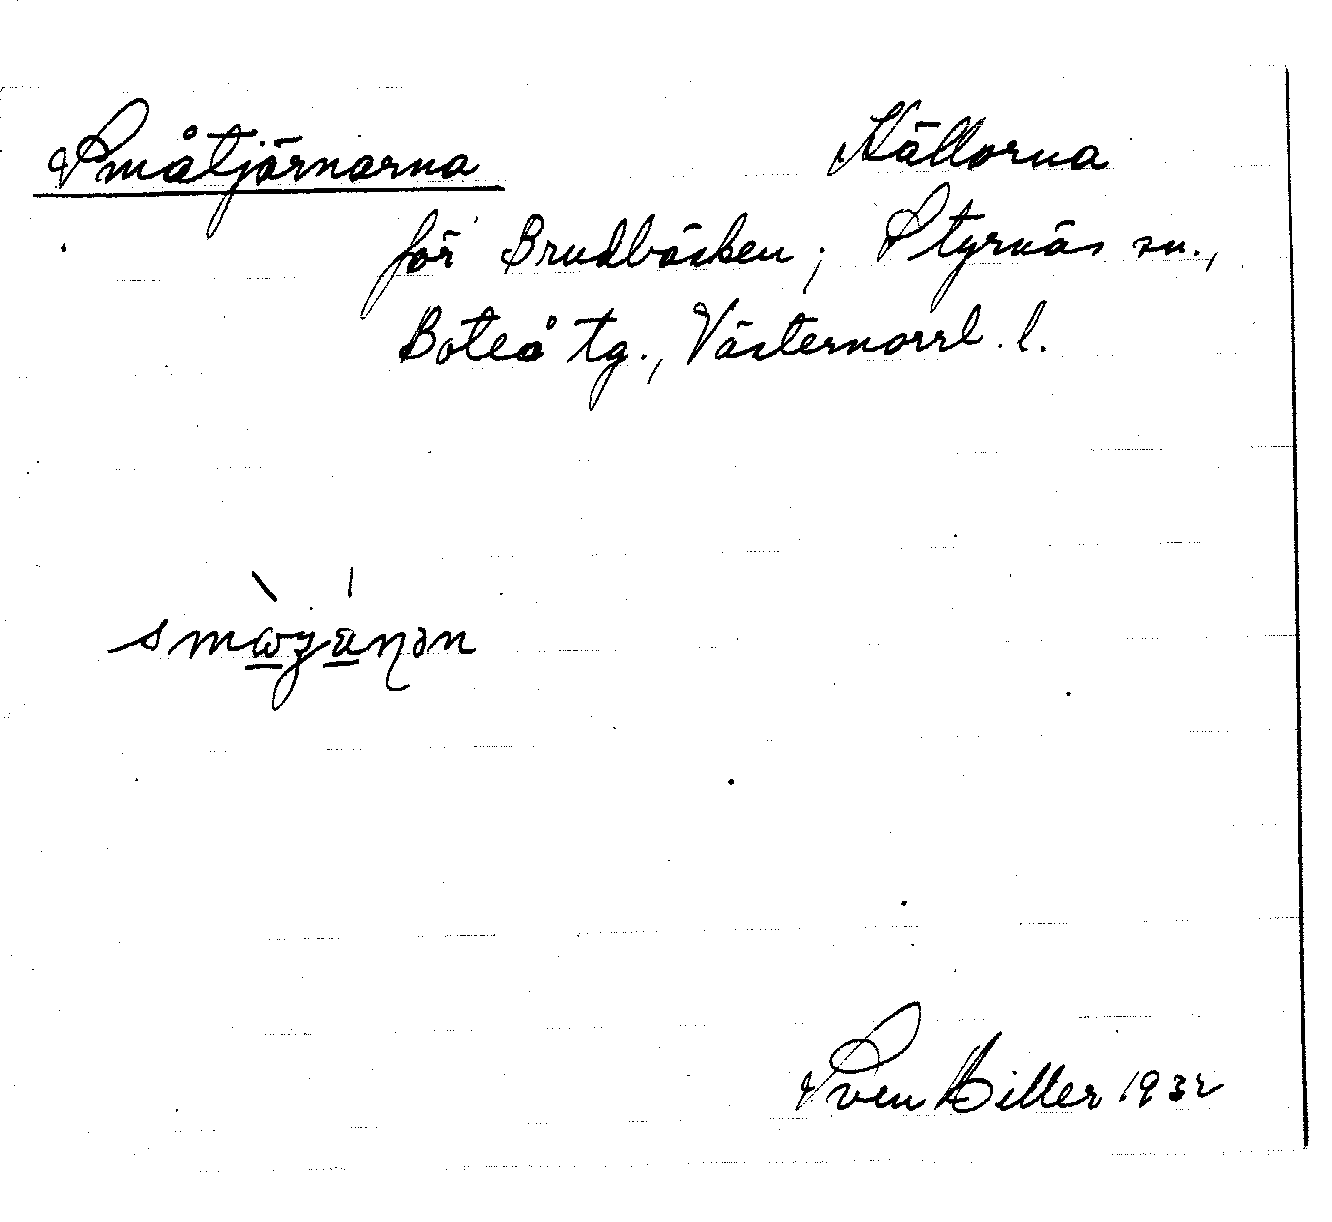 Småtjärnarna Källorna
för Brudbäcken; Styrnäs sn.,
Boteå tg., Västernorrl. l.
Sven Hiller 1932